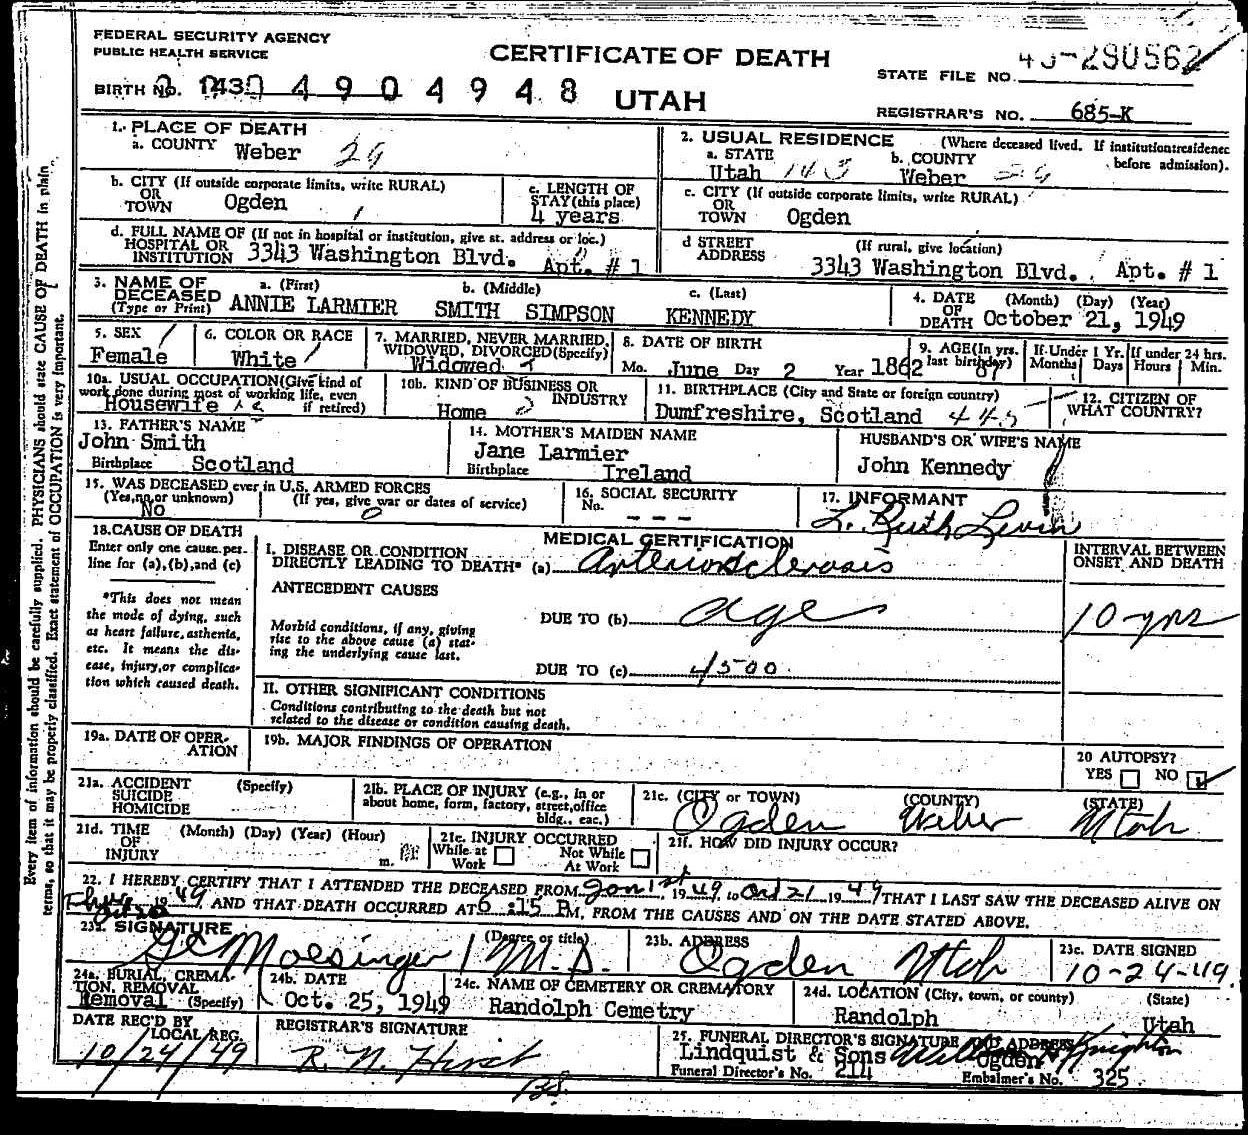 FEDERAL SECURITY AGENCY
PUBLIC HEALTH SERVICE
CERTIFICATE OF DEATH
STATE FILE NO. 290562
BIRTH NO. 4904948 UTAH
REGISTRAR'S NO. 685-K
1. PLACE OF DEATH
a. COUNTY Weber 29
2. USUAL RESIDENCE (Where deceased lived. If institution residence before admission).
a. STATE Utah 143 b. COUNTY Weber
b. CITY (If outside corporate limits, write RURAL) OR TOWN Ogden
c. LENGTH OF STAY (this place) 4 years
c. CITY (If outside corporate limits, write RURAL) OR TOWN Ogden
d. FULL NAME OF (If not in hospital or institution, give st. address or loc.) HOSPITAL OR INSTITUTION 3343 Washington Blvd. Apt. # 1
d STREET ADDRESS (If rural, give location) 3343 Washington Blvd. Apt. # 1
3. NAME OF DECEASED (Type or Print) a. (First) b. (Middle) c. (Last)
ANNIE LARMIER SMITH SIMPSON KENNEDY
4. DATE OF DEATH (Month) (Day) (Year) October 21, 1949
5. SEX Female
6. COLOR OR RACE White
7. MARRIED, NEVER MARRIED, WIDOWED, DIVORCED (Specify) Widowed
8. DATE OF BIRTH Mo. June Day 2 Year 1862
9. AGE (In yrs. last birthday) 87
If Under 1 Yr. Months Days
If under 24 hrs. Hours Min.
10a. USUAL OCCUPATION (Give kind of work done during most of working life, even if retired) Housewife
10b. KIND OF BUSINESS OR INDUSTRY Home
11. BIRTHPLACE (City and State or foreign country) Dumfreshire, Scotland
12. CITIZEN OF WHAT COUNTRY?
13. FATHER'S NAME John Smith
Birthplace Scotland
14. MOTHER'S MAIDEN NAME Jane Larmier
Birthplace Ireland
HUSBAND'S OR WIFE'S NAME John Kennedy
15. WAS DECEASED ever in U.S. ARMED FORCES (Yes, no or unknown) No (If yes, give war or dates of service) 0
16. SOCIAL SECURITY No. - - -
17. INFORMANT L. Ruth Levin
18. CAUSE OF DEATH
Enter only one cause per line for (a), (b), and (c)
*This does not mean the mode of dying, such as heart failure, asthenia, etc. It means the disease, injury, or complication which caused death.
MEDICAL CERTIFICATION
I. DISEASE OR CONDITION DIRECTLY LEADING TO DEATH* (a) Arteriosclerosis
ANTECEDENT CAUSES
Morbid conditions, if any, giving rise to the above cause (a) stating the underlying cause last.
DUE TO (b) age
DUE TO (c) 4500
INTERVAL BETWEEN ONSET AND DEATH
10-yrs
II. OTHER SIGNIFICANT CONDITIONS
Conditions contributing to the death but not related to the disease or condition causing death.
19a. DATE OF OPERATION
19b. MAJOR FINDINGS OF OPERATION
20 AUTOPSY? YES NO
21a. ACCIDENT SUICIDE HOMICIDE (Specify)
21b. PLACE OF INJURY (e.g., in or about home, form, factory, street, office bldg., eac.)
21c. (CITY or TOWN) (COUNTY) (STATE)
Ogden Weber Utah
21d. TIME OF INJURY (Month) (Day) (Year) (Hour) m.
21e. INJURY OCCURRED While at Work Not While At Work
21f. HOW DID INJURY OCCUR?
22. I HEREBY CERTIFY THAT I ATTENDED THE DECEASED FROM Jan 1st 1949, to Oct 21 1949 THAT I LAST SAW THE DECEASED ALIVE ON
1949 AND THAT DEATH OCCURRED AT 6:15 P.M, FROM THE CAUSES AND ON THE DATE STATED ABOVE.
23a. SIGNATURE (Degree or title) Moesinger M.D.
23b. ADDRESS Ogden Utah
23c. DATE SIGNED 10-24-49
24a. BURIAL, CREMATION, REMOVAL (Specify) Removal
24b. DATE Oct. 25, 1949
24c. NAME OF CEMETERY OR CREMATORY Randolph Cemetry
24d. LOCATION (City, town, or county) (State) Randolph Utah
DATE REC'D BY LOCAL REG. 10/24/49
REGISTRAR'S SIGNATURE R. N. Hirst
25. FUNERAL DIRECTOR'S SIGNATURE AND ADDRESS
Lindquist & Sons Ogden
Funeral Director's No. 214
Embalmer's No. 325
Every item of information should be carefully supplied. PHYSICIANS should state CAUSE OF DEATH in plain
terms, so that it may be properly classified. Exact statement of OCCUPATION is very important.